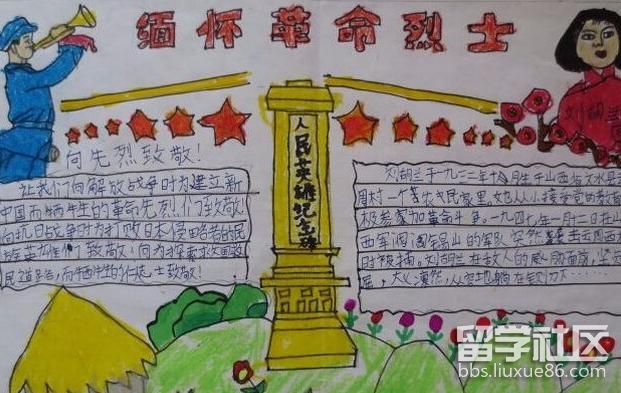 缅怀革命烈士
刘胡兰
人民英雄纪念碑
向先烈致敬!
让我们向解放战争时为建立新
中国而牺牲的革命先烈们致敬!
向抗日战争时为打败日本侵略者的民
族英雄们致敬!向为
民 致敬!
刘胡兰于一九三二年十月生于山西省文水县
周村一个 农民家里。她从小接受党的教育
极参加革命斗争。一九四七年一月十二日在山
西军阀阎锡山的军队突然 云周西
时被捕。刘胡兰在敌人的威胁面前,坚
屈,大义凛然,从容地躺在铡刀下……
留学社区
bbs.liuxue86.com